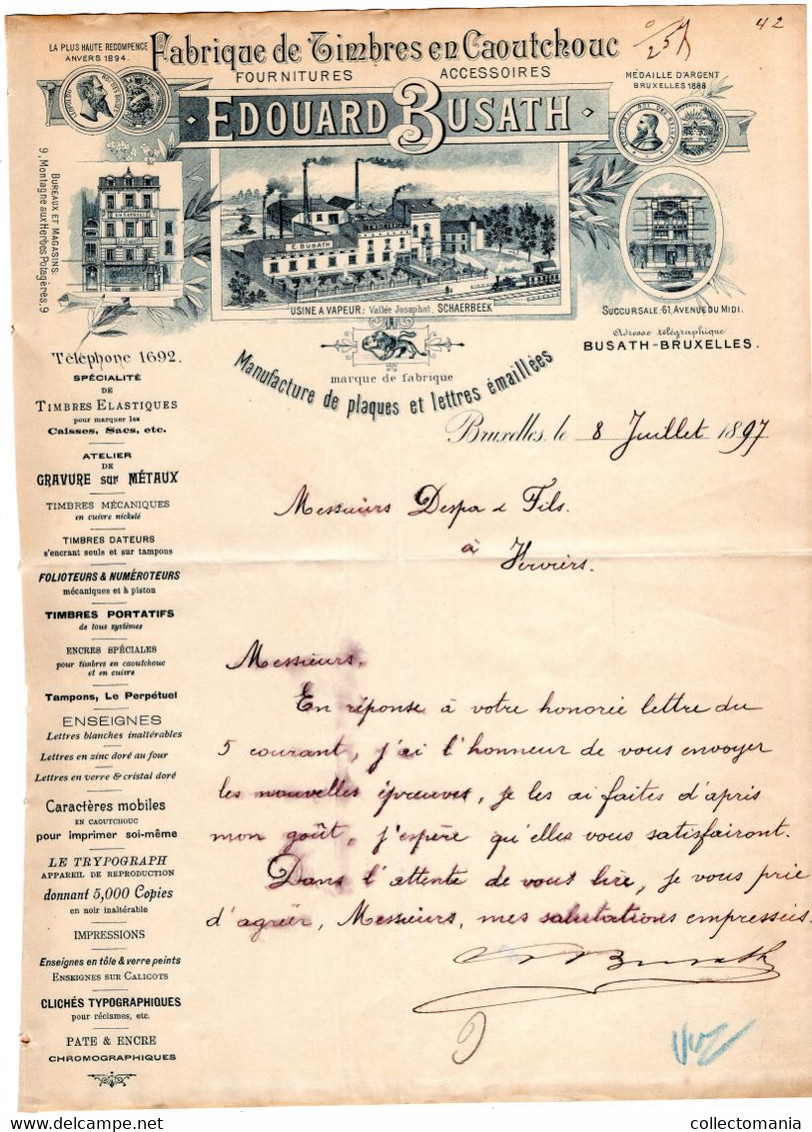 LA PLUS HAUTE RECOMPENCE
ANVERS 1894.
Fabrique de Timbres en Caoutchouc
FOURNITURES ACCESSOIRES
EDOUARD BUSATH
42
MÉDAILLE D'ARGENT
BRUXELLES 1888
BUREAUX ET MAGASINS:
9, Montagne aux Herbes Potagères, 9
E. BUSATH
USINE A VAPEUR: Vallée Josaphat, SCHAERBEEK
SUCCURSALE: 61, AVENUE DU MIDI.
Adresse télégraphique
BUSATH-BRUXELLES.
marque de fabrique
Manufacture de plaques et lettres émaillées
Téléphone 1692.
SPÉCIALITÉ
DE
TIMBRES ELASTIQUES
pour marquer les
Caisses, Sacs, etc.
ATELIER
DE
GRAVURE sur MÉTAUX
TIMBRES MÉCANIQUES
en cuivre nickelé
TIMBRES DATEURS
s'encrant seuls et sur tampons
FOLIOTEURS & NUMÉROTEURS
mécaniques et à piston
TIMBRES PORTATIFS
de tous systèmes
ENCRES SPÉCIALES
pour timbres en caoutchouc
et en cuivre
Tampons, Le Perpétuel
ENSEIGNES
Lettres blanches inaltérables
Lettres en zinc doré au four
Lettres en verre & cristal doré
Caractères mobiles
EN CAOUTCHOUC
pour imprimer soi-même
LE TRYPOGRAPH
APPAREIL DE REPRODUCTION
donnant 5,000 Copies
en noir inaltérable
IMPRESSIONS
Enseignes en tôle & verre peints
ENSEIGNES SUR CALICOTS
CLICHÉS TYPOGRAPHIQUES
pour réclames, etc.
PATE & ENCRE
CHROMOGRAPHIQUES
Bruxelles, le 8 Juillet 1897
Messieurs Despa & Fils.
à
Verviers.
Messieurs.
En réponse à votre honorée lettre du
5 courant, j'ai l'honneur de vous envoyer
les nouvelles épreuves, je les ai faites d'après
mon goût, j'espère qu'elles vous satisfairont.
Dans l'attente de vous lire, je vous prie
d'agréer, Messieurs, mes salutations empressées.
Busath
collectomania